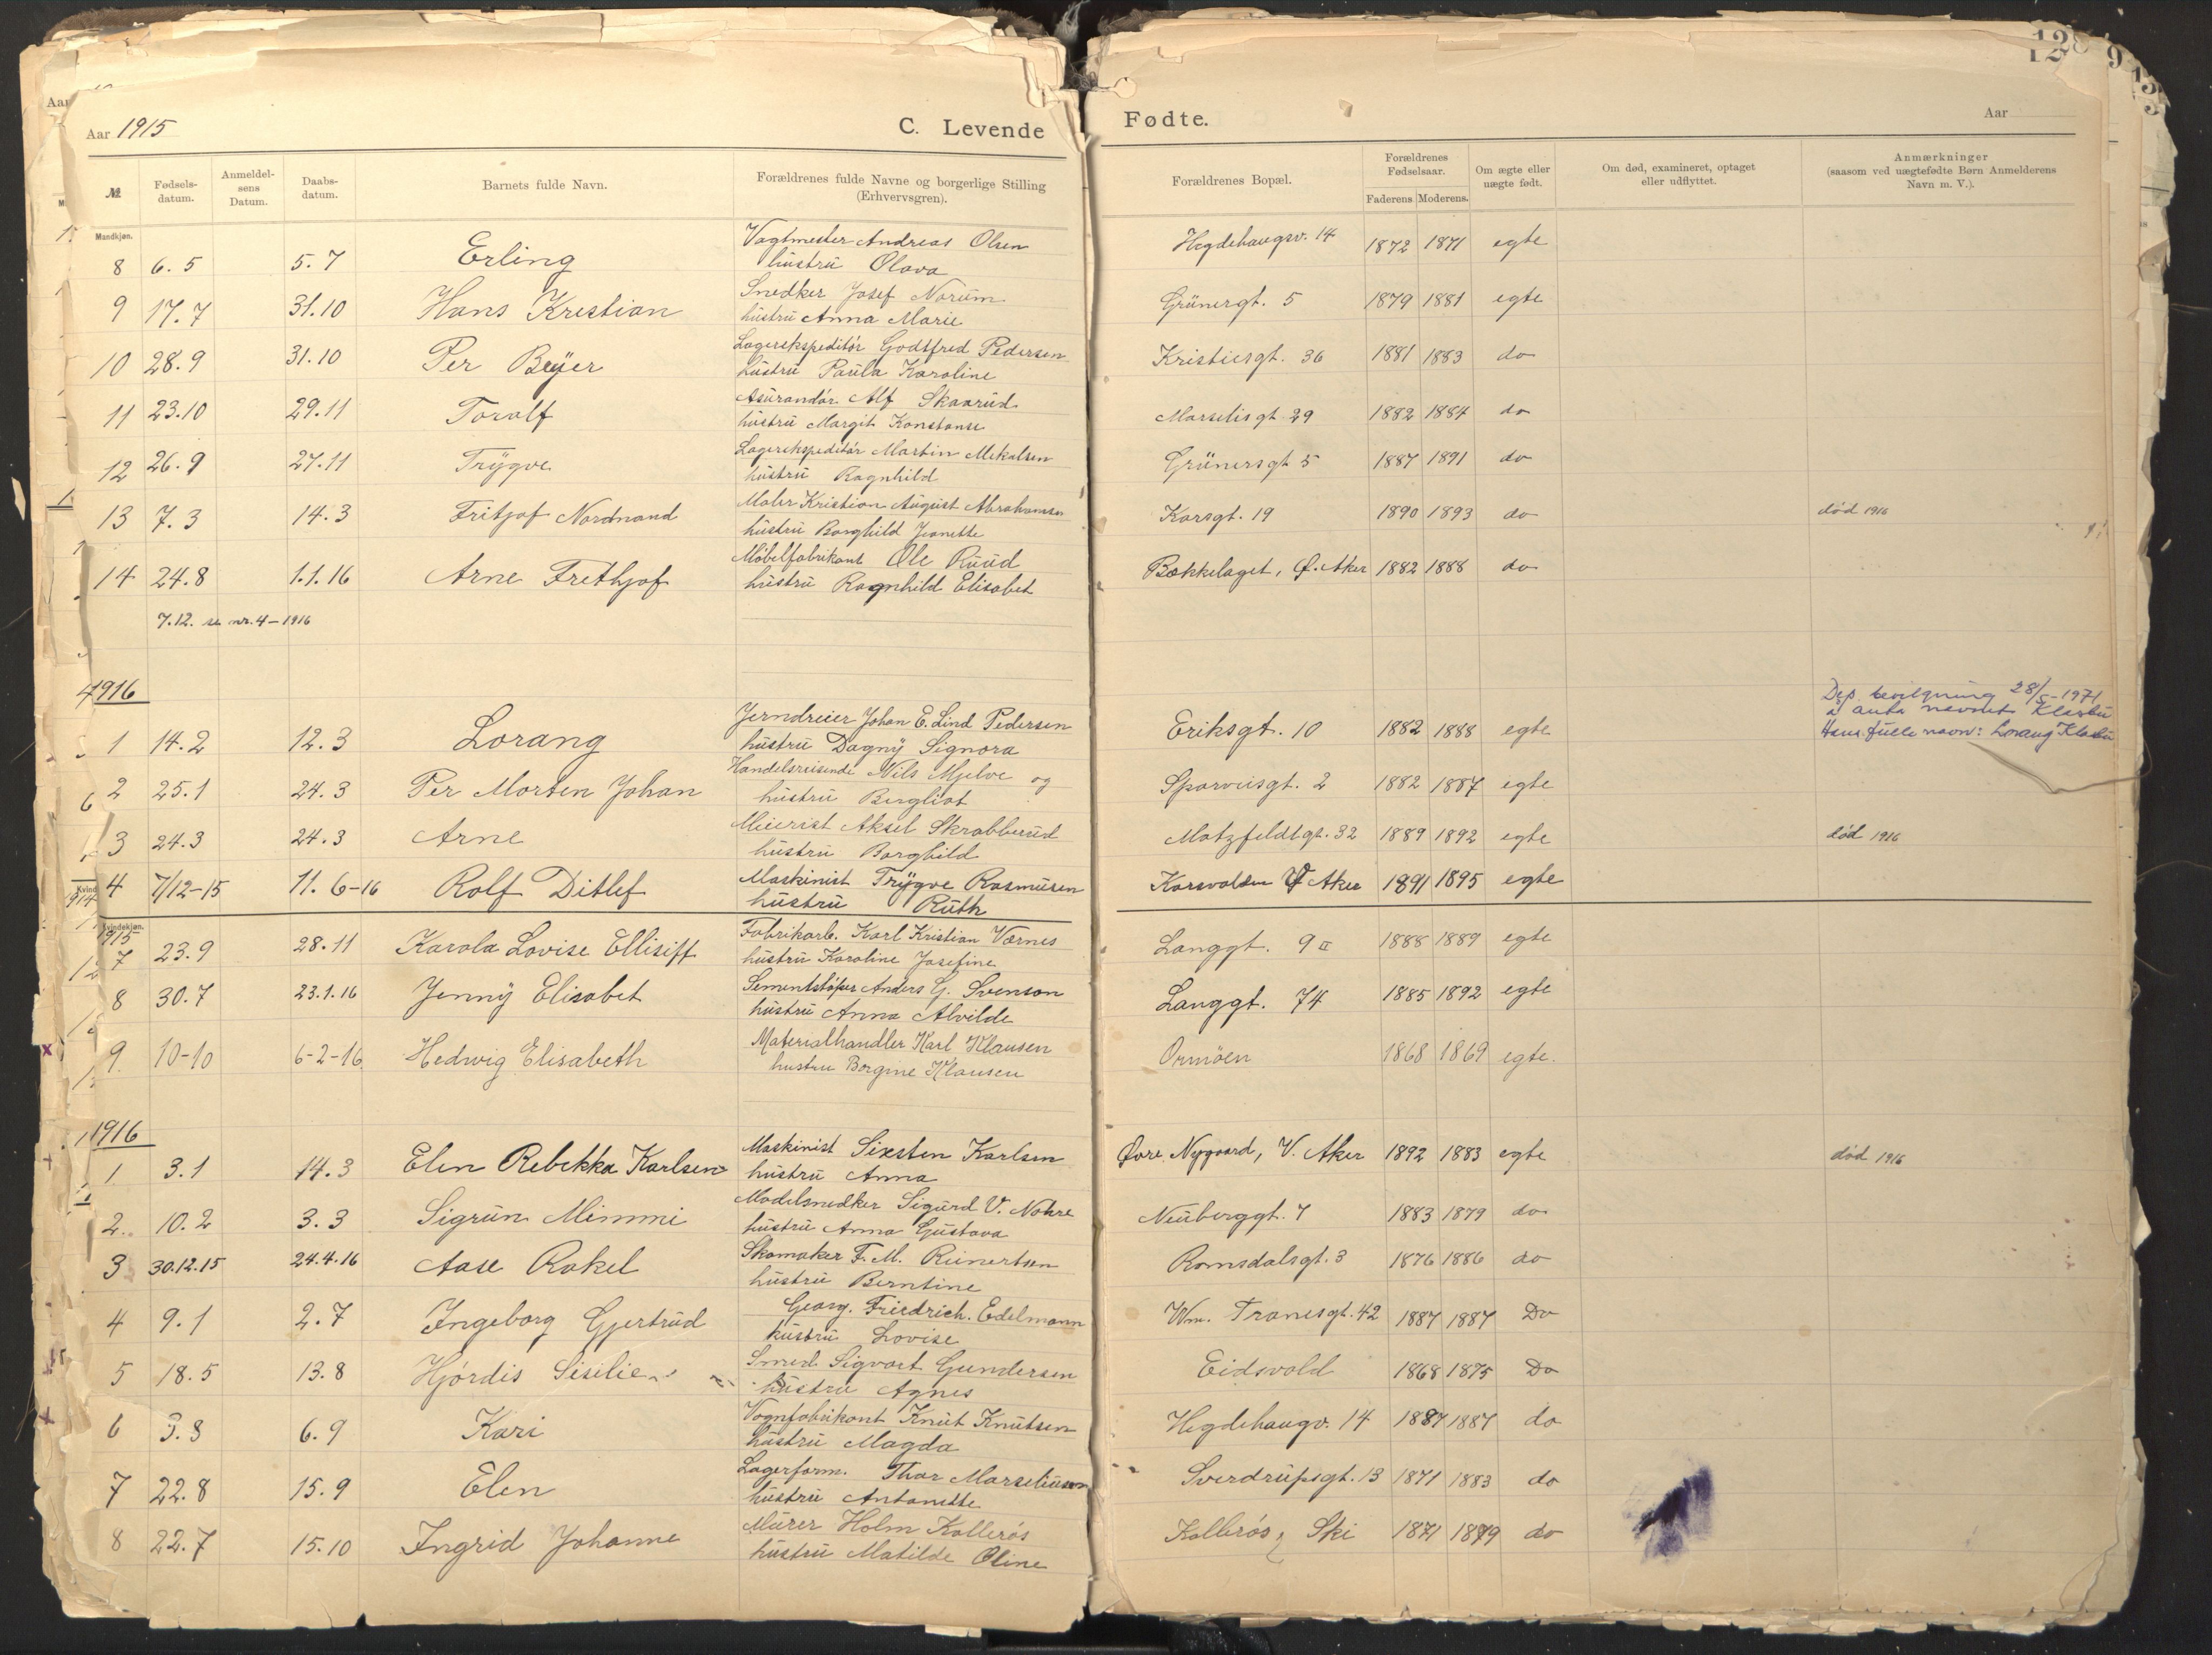 Aar 1915
C. Levende
Fødte.
Aar
128
№
Fødsels-
datum.
Anmeldel-
sens
Datum.
Daabs-
datum.
Barnets fulde Navn.
Forældrenes fulde Navne og borgerlige Stilling
(Erhvervsgren).
Forældrenes Bopæl.
Forældrenes
Fødselsaar.
Faderens. Moderens.
Om ægte eller
uægte født.
Om død, examineret, optaget
eller udflyttet.
Anmærkninger
(saasom ved uægtefødte Børn Anmelderens
Navn m. V.).
Mandkjøn.
8 6.5 5.7 Erling Vagtmester Andreas Olsen Hegdehaugsv. 14 1872 1871 egte
hustru Olava
9 17.7 31.10 Hans Krestian Snedker Josef Norum Grünergt. 5 1879 1881 egte
hustru Anna Marie
10 28.9 31.10 Per Beyer Lagerekspeditør Godtfred Pedersen Kristiesgt. 36 1881 1883 do
hustru Paula Karoline
11 23.10 29.11 Toralf Asurandør Alf Skaarud Marselisgt 29 1882 1884 do
hustru Margit Konstanse
12 26.9 27.11 Trygve Lagerekspeditør Martin Mekalsen Grünersgt 5 1887 1891 do
hustru Ragnhild
13 7.3 14.3 Fritjof Nordnand Maler Kristian August Abrahamsen Korsgt. 19 1890 1893 do død 1916
hustru Borghild Jeanette
14 24.8 1.1.16 Arne Frethjof Møbelfabrikant Ole Ruud Bækkelaget, Ø. Aker 1882 1888 do
hustru Ragnhild Elisabet
7.12. se nr. 4 – 1916
1916
1 14.2 12.3 Lorang Jerndreier Johan E. Lind Pedersen Eriksgt. 10 1882 1888 egte Dep. bevilgning 28/5-1971
hustru Dagny Signora å anta navnet Klæbu
Hans fulle navn: Lorang Klæbu
2 25.1 24.3 Per Morten Johan Handelsreisende Nils Mjelve og Sporveisgt. 2 1882 1887 egte
hustru Bergliot
3 24.3 24.3 Arne Meierist Aksel Skrabberud Motzfeldtgt. 32 1889 1892 egte død 1916
hustru Borghild
4 7/12-15 11.6-16 Rolf Ditlef Maskinist Trygve Rasmusen Korsvolden Ø Aker 1891 1895 egte
hustru Ruth
Kvindekjøn.
1915
7 23.9 28.11 Karola Lovise Ellisiff Fabrikarb. Karl Kristian Værnes Langgt. 9 II 1888 1889 egte
hustru Karoline Josefine
8 30.7 23.1.16 Jenny Elisabet Sementstøper Anders G. Svenson Langgt. 74 1885 1892 egte
hustru Anna Alvilde
9. 10-10 6-2-16 Hedwig Elisabeth Materialhandler Karl Klausen Ormøen 1868 1869 egte.
hustru Borgine Klausen
1916
1 3.1 14.3 Elen Rebekka Karlsen Maskinist Sixsten Karlsen Øvre Nygaard, V. Aker 1892 1883 egte død 1916
hustru Anna
2. 10.2 3.3 Sigrun Mimmi Modelsnedker Sigurd V. Nohre Neuberggt. 7 1883 1879 do
hustru Anna Gustava
3 30.12.15 24.4.16 Aase Rakel Skomaker F. M. Reinertsen Romsdalsgt. 3 1876 1886 do
hustru Berntine
4 9.1 2.7 Ingeborg Gjertrud Georg. Friedrich. Edelmann Wm. Tranesgt. 42 1887 1887 Do
hustru Lovise
5 18.5 13.8 Hjørdis Sisilie Smed Sigvart Gundersen Eidsvold 1868 1875 Do
hustru Agnes
6 3.8 6.9 Kari Vognfabrikant Knut Knutsen Hegdehaugv. 14 1887 1887 do
hustru Magda
7 22.8 15.9 Elen Lagerform. Thor Marseliusen Sverdrupsgt. 13 1871 1883 do
hustru Antonette
8 22.7 15.10 Ingrid Johanne Murer Holm Kollerøs Kollerøs, Ski 1871 1879 do
hustru Matilde Oline